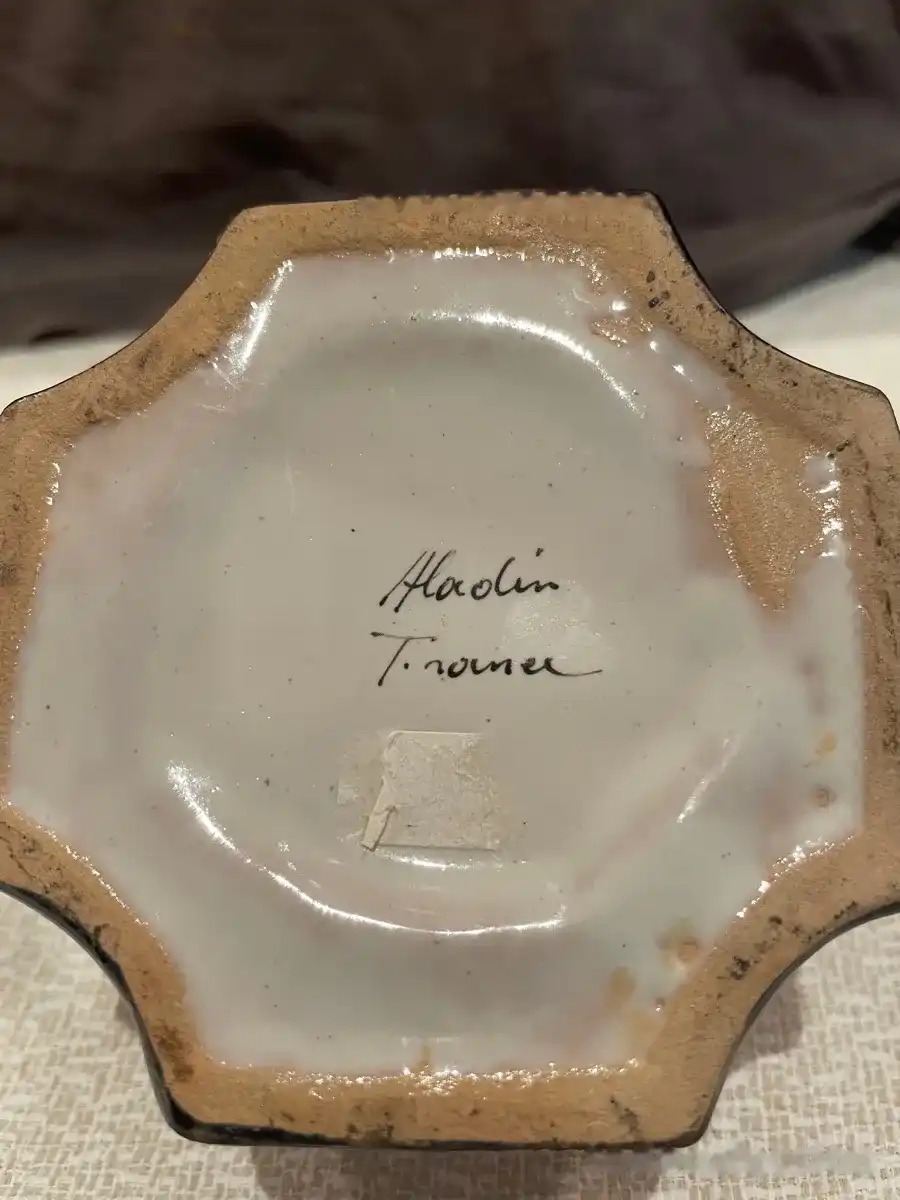 Aladin
France